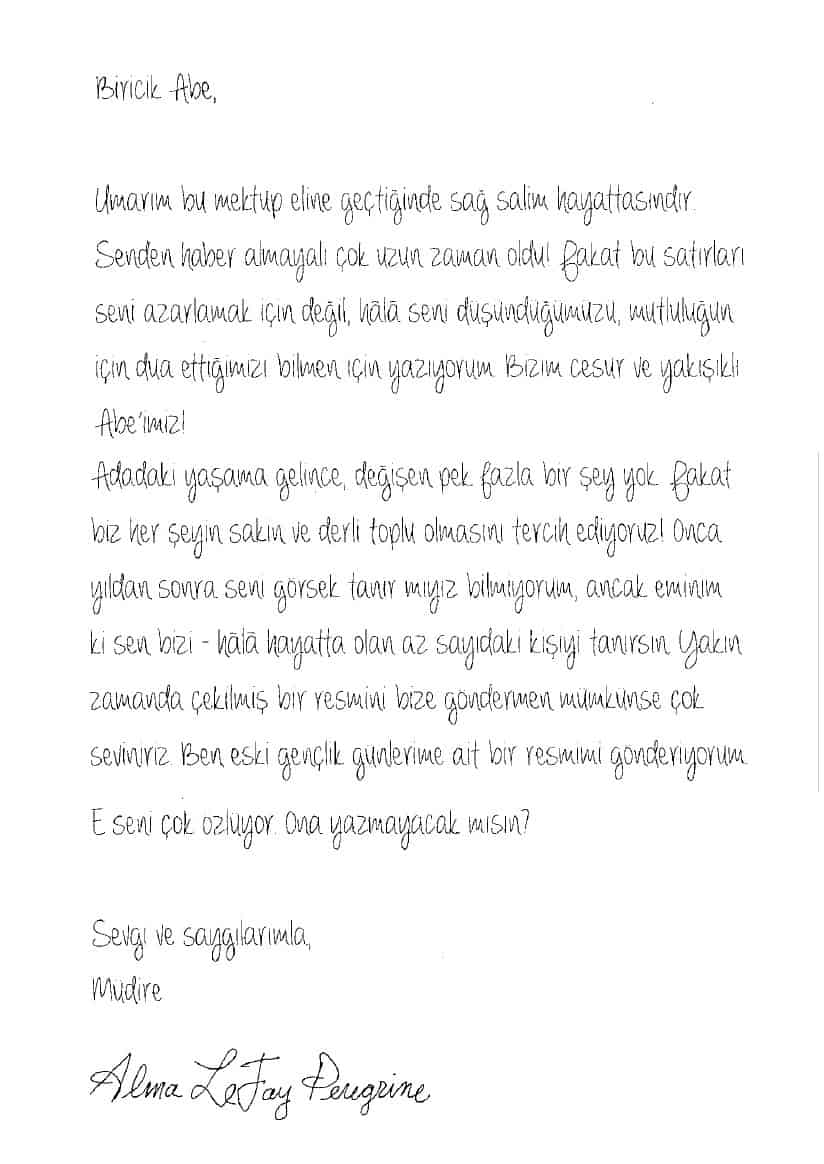 Biricik Abe,
Umarım bu mektup eline geçtiğinde sağ salim hayattasındır.
Senden haber almayalı çok uzun zaman oldu! Fakat bu satırları
seni azarlamak için değil, hâlâ seni düşündüğümüzü, mutluluğun
için dua ettiğimizi bilmen için yazıyorum. Bizim cesur ve yakışıklı
Abe'imiz!
Adadaki yaşama gelince, değişen pek fazla bir şey yok. Fakat
biz her şeyin sakin ve derli toplu olmasını tercih ediyoruz! Onca
yıldan sonra seni görsek tanır mıyız bilmiyorum, ancak eminim
ki sen bizi - hâlâ hayatta olan az sayıdaki kişiyi tanırsın. Yakın
zamanda çekilmiş bir resmini bize göndermen mümkünse çok
seviniriz. Ben eski gençlik günlerime ait bir resmimi gönderiyorum.
E seni çok özlüyor. Ona yazmayacak mısın?
Sevgi ve saygılarımla,
Müdire
Alma LeFay Peregrine